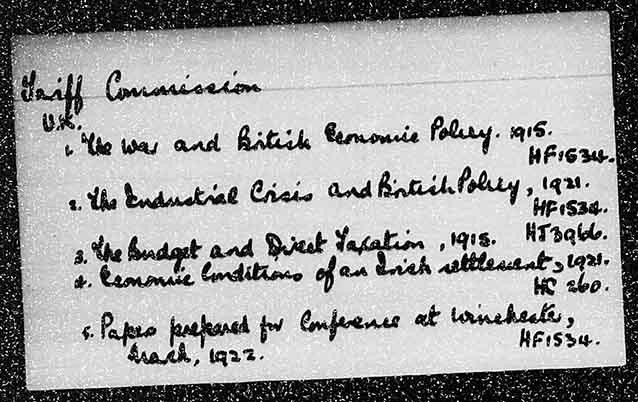 Tariff Commission
U.K.
1. The War and British Economic Policy. 1915.
HF1534.
2. The Industrial Crisis and British Policy, 1921.
HF1534.
3. The Budget and Direct Taxation, 1915. HJ3966.
4. Economic Conditions of an Irish settlement, 1921.
HC 260.
5. Papers prepared for Conference at Winchester,
March, 1922. HF1534.